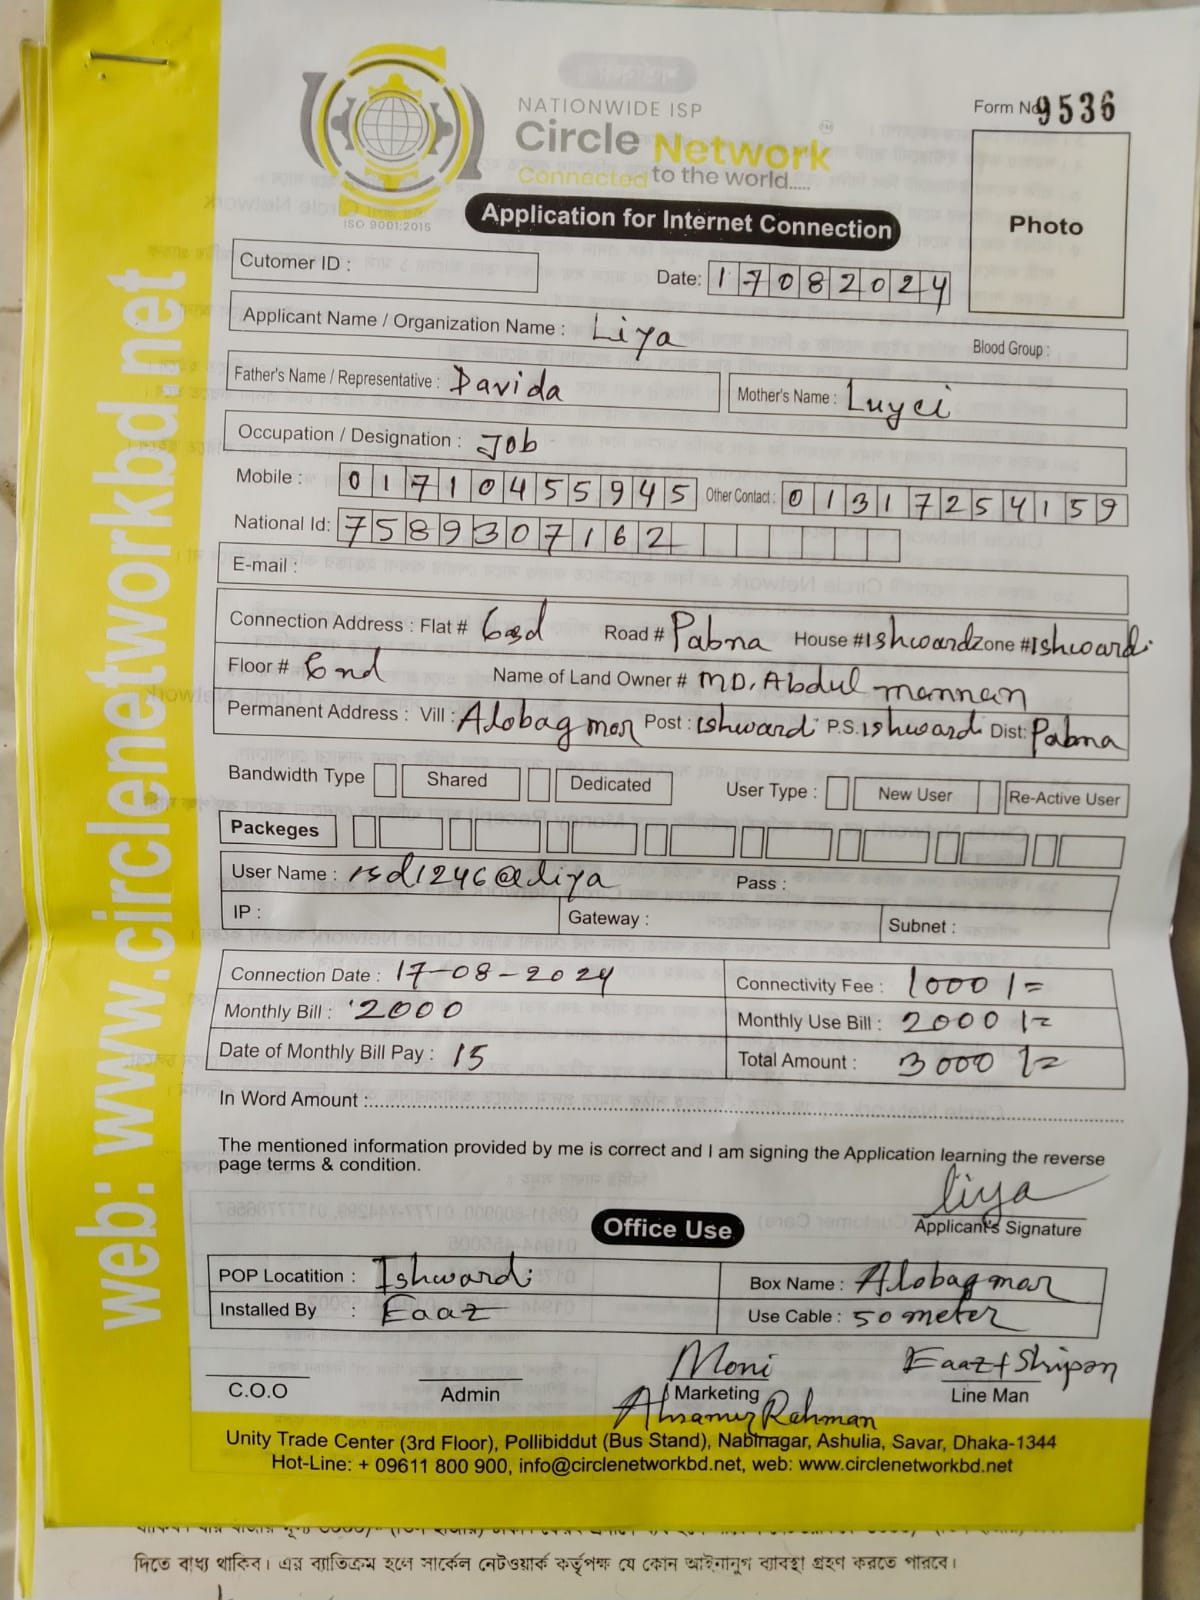 NATIONWIDE ISP
Circle Network
Connected to the world.....
ISO 9001:2015
Form No 9536
Photo
Application for Internet Connection
Cutomer ID :
Date: 17082024
Applicant Name / Organization Name : Liya
Blood Group :
Father's Name / Representative : Davida
Mother's Name : Luyci
Occupation / Designation : Job
Mobile : 01710455945 Other Contact : 01317254159
National Id: 7589307162
E-mail :
Connection Address : Flat # Road # Pabna House # Ishward Zone # Ishwardi
Floor # Name of Land Owner # MD, Abdul mannan
Permanent Address : Vill : Alobag mor Post : ishwardi P.S. Ishwardi Dist: Pabna
Bandwidth Type Shared Dedicated User Type : New User Re-Active User
Packeges
User Name : isd1246@liya Pass :
IP : Gateway : Subnet :
Connection Date : 17-08-2024 Connectivity Fee : 1000/=
Monthly Bill : 2000 Monthly Use Bill : 2000/=
Date of Monthly Bill Pay : 15 Total Amount : 3000/=
In Word Amount :
The mentioned information provided by me is correct and I am signing the Application learning the reverse
page terms & condition.
liya
Applicant's Signature
Office Use
POP Locatition : Ishwardi Box Name : Alobag mor
Installed By : Eaaz Use Cable : 50 meter
Moni Eaaz + Shipon
C.O.O Admin Marketing Line Man
Rahman
Unity Trade Center (3rd Floor), Pollibiddut (Bus Stand), Nabinagar, Ashulia, Savar, Dhaka-1344
Hot-Line: + 09611 800 900, info@circlenetworkbd.net, web: www.circlenetworkbd.net
web: www.circlenetworkbd.net
দিতে বাধ্য থাকিব। এর ব্যতিক্রম হলে সার্কেল নেটওয়ার্ক কর্তৃপক্ষ যে কোন আইনানুগ ব্যাবস্থা গ্রহণ করতে পারবে।